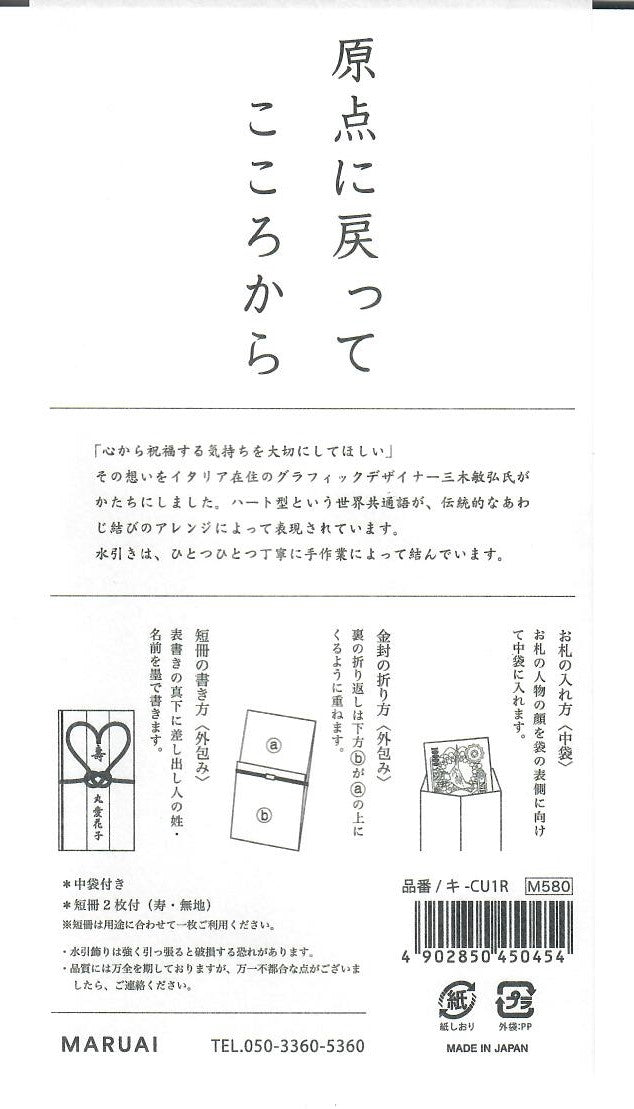 原点に戻って
こころから
「心から祝福する気持ちを大切にしてほしい」
その想いをイタリア在住のグラフィックデザイナー三木敏弘氏が
かたちにしました。ハート型という世界共通語が、伝統的なあわ
じ結びのアレンジによって表現されています。
水引きは、ひとつひとつ丁寧に手作業によって結んでいます。
お札の入れ方〈中袋〉
お札の人物の顔を袋の表側に向け
て中袋に入れます。
金封の折り方〈外包み〉
裏の折り返しは下方ⓑがⓐの上に
くるように重ねます。
短冊の書き方〈外包み〉
表書きの真下に差し出し人の姓・
名前を墨で書きます。
ⓐ
ⓑ
寿
丸愛花子
*中袋付き
*短冊2枚付（寿・無地）
※短冊は用途に合わせて一枚ご利用ください。
・水引飾りは強く引っ張ると破損する恐れがあります。
・品質には万全を期しておりますが、万一不都合な点がございま
したら、ご連絡ください。
MARUAI TEL.050-3360-5360
品番/キ-CU1R M580
4 902850 450454
紙
紙しおり
プラ
外袋:PP
MADE IN JAPAN